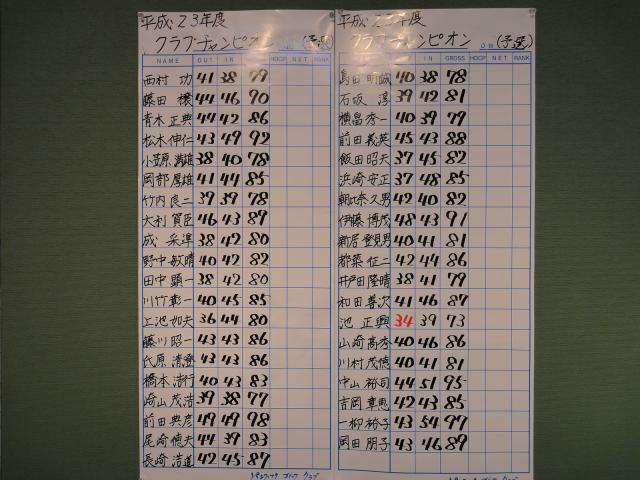 平成23年度
クラブチャンピオン (予選)
NAME OUT IN GROSS HDCP NET RANK
西村 功 41 38 79
藤田 穣 44 46 90
青木 正典 44 42 86
松木 伸仁 43 49 92
小笠原 満雄 38 40 78
岡部 厚雄 41 44 85
竹内 良二 39 39 78
大利 賀臣 46 43 89
成 采準 38 42 80
野中 敏晴 40 42 82
田中 顕一 38 42 80
川竹 彰一 40 45 85
上池 如夫 36 44 80
藤川 昭一 43 43 86
氏原 清澄 43 43 86
橋本 浩行 40 43 83
崎山 茂浩 39 38 77
前田 典彦 49 49 98
尾崎 徳夫 44 39 83
長崎 浩道 42 45 87
平成23年度
クラブチャンピオン (予選)
NAME OUT IN GROSS HDCP NET RANK
島田 明誠 40 38 78
石坂 淳 39 42 81
横畠 秀一 40 39 79
前田 義英 45 43 88
飯田 昭夫 37 45 82
浜崎 安正 37 48 85
朝比奈 久男 42 40 82
伊藤 博茂 48 43 91
新居 登見男 40 41 81
都築 征二 42 44 86
井戸田 隆晴 38 41 79
和田 善次 41 46 87
池 正興 34 39 73
山崎 高秀 40 46 86
川村 茂徳 40 41 81
中山 裕司 44 51 95
吉岡 章恵 42 43 85
一柳 裕子 43 54 97
岡田 朋子 43 46 89